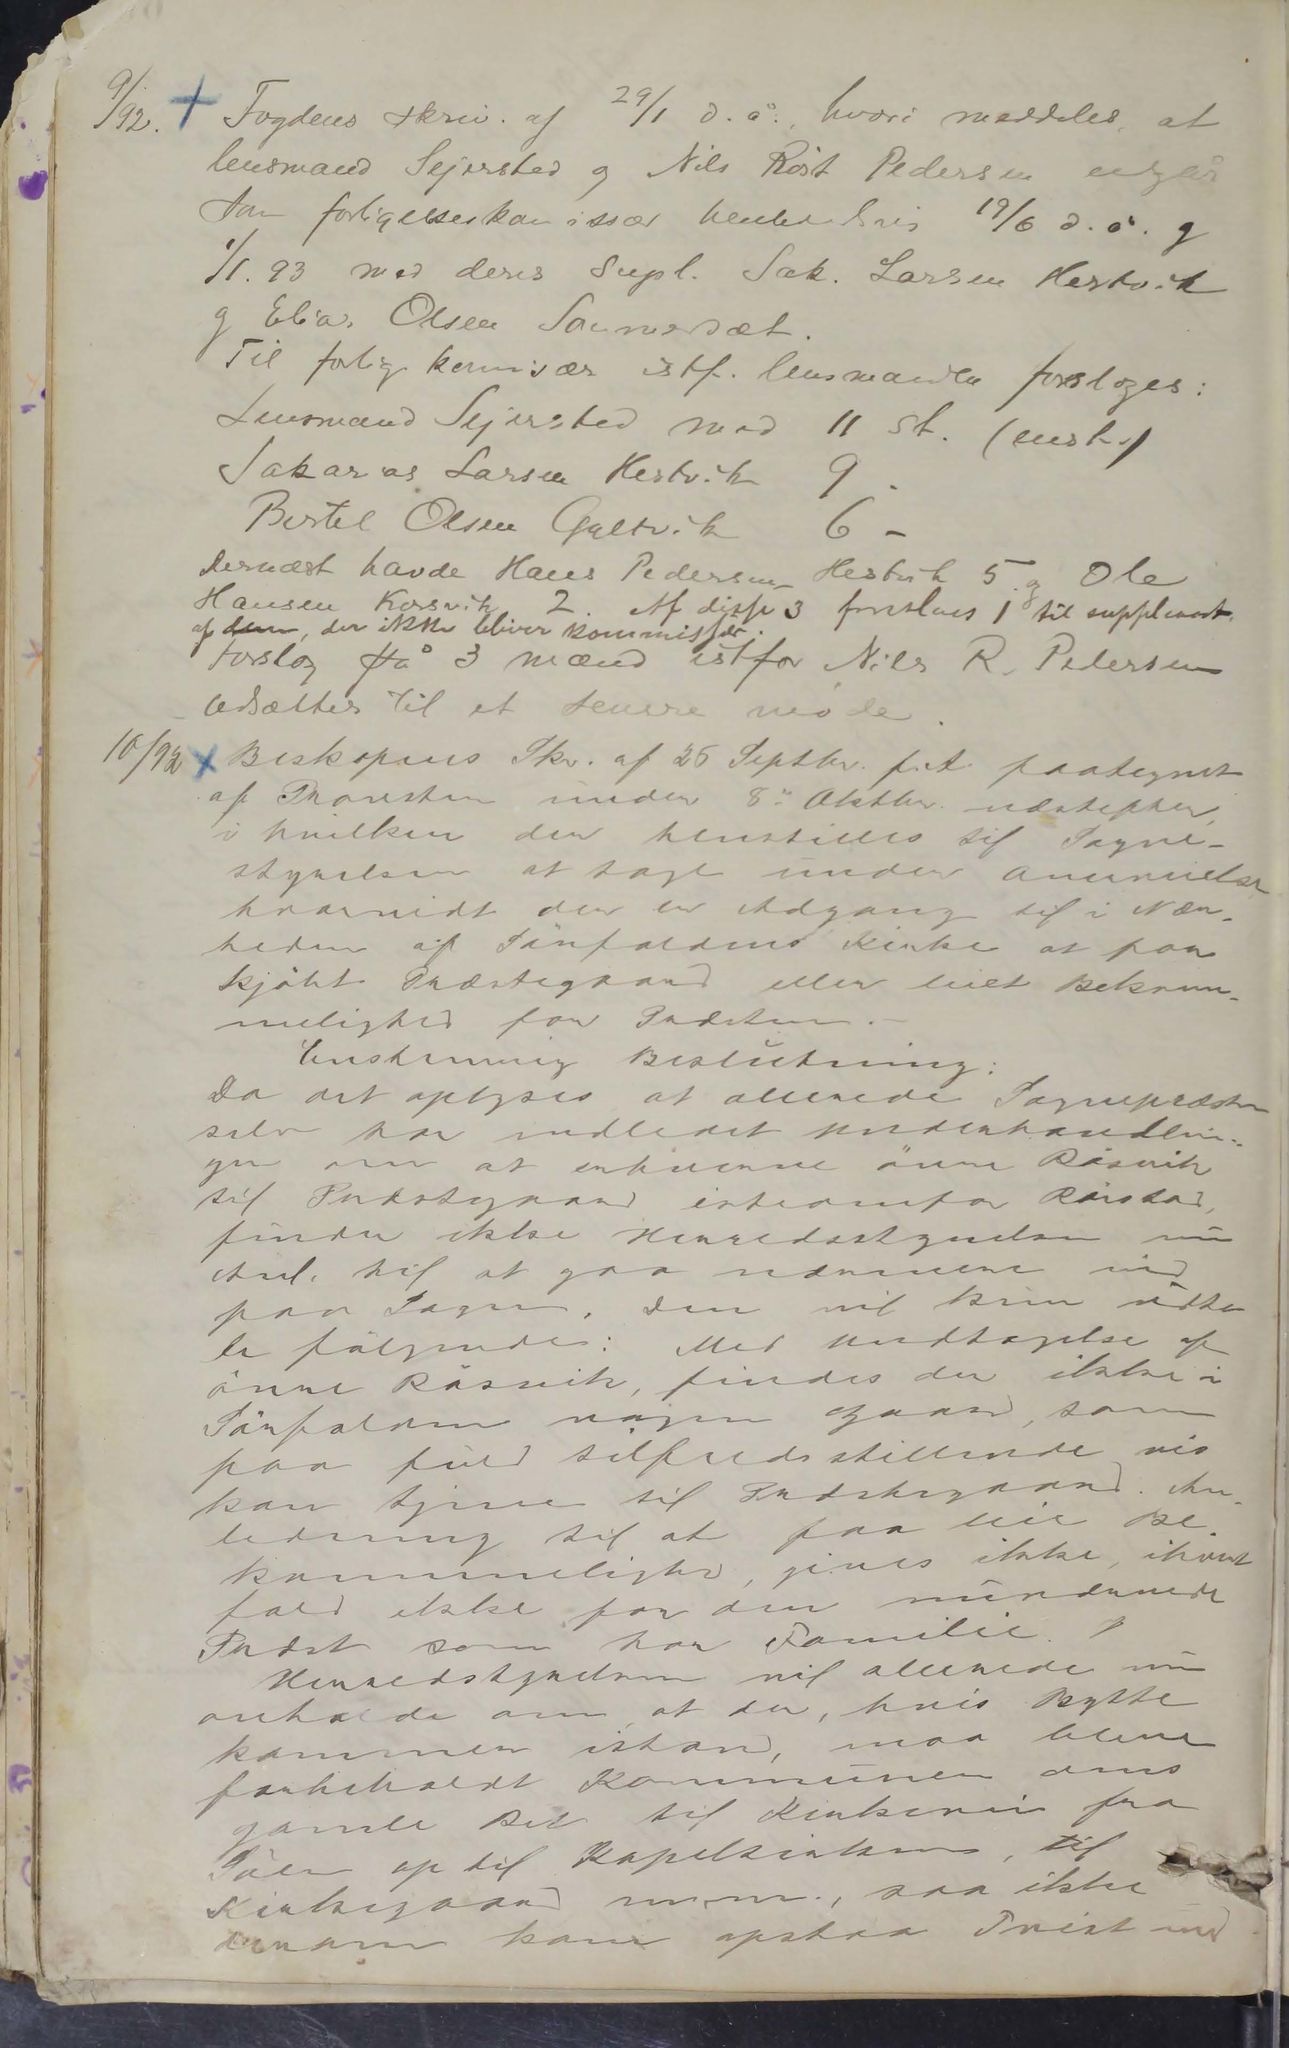 9/92. + Fogdens skriv. af 29/1 d. å., hvori meddeles, at
lensmand Sejersted g Nils Röst Pedersen udgår
som forligelseskomissær henholdsvis 19/6 d. å. g
1/1. 93 med deres Supl. Sak. Larsen Hestvik
g Elias Olsen Sommerset.
Til forligskomisær istf. lensmanden foresloges:
Lensmand Sejersted med 11 St. (enst.)
Sakarias Larsen Hestvik 9 -
Bertel Olsen Gyltvik 6 -
Dernæst havde Hans Pedersen Hestvik 5 g Ole
Hansen Korsvik 2. Af disse 3 foreslaaes 1 til suppleant
af dem, der ikke bliver kommissær.
Forslag på 3 mænd istfor Nils R. Pedersen
udsættes til et senere möde.
10/92 x Biskopens Skr. af 26 Septbr. f. A. paategnet
af Provsten under 8de Oktbr. næstefter,
i hvilken der henstilles til Sogne-
styrelsen at tage under Overveielse
hvorvidt der er Adgang til i Nær-
heden af Sörfoldens Kirke at faa
kjöbt Præstegaard eller leiet Bekvem-
melighed for Præsten. -
Enstemmig Beslutning:
Da det oplyses at allerede Sognepræsten
selv har indledet Underhandlin-
ger om at erhverve övre Rösvik
til Præstegaard istedenfor Rövstad,
finder ikke Herredsstyrelsen nu
Anl. til at gaa nærmere ind
paa Sagen. Den vil kun udta-
le fölgende: Med Undtagelse af
övre Rösvik, findes der ikke i
Sörfolden nogen Gaard, som
paa fuld tilfredsstillende vis
kan tjene til Præstegaard. An-
ledning til at faa leie Be-
kvemmelighed, gives ikke, ihvert
fald ikke for den nuværende
Præst som har Familie.
Herredstyrelsen vil allerede nu
anholde om at der, hvis Bytte
kommer istand, maa blive
forbeholdt Kommunen dens
gamle Ret til Kirkevei fra
Söen op til Kapelkirken, til
Kirkegaard m.m., saa ikke
derom kan opstaa Tvist ved